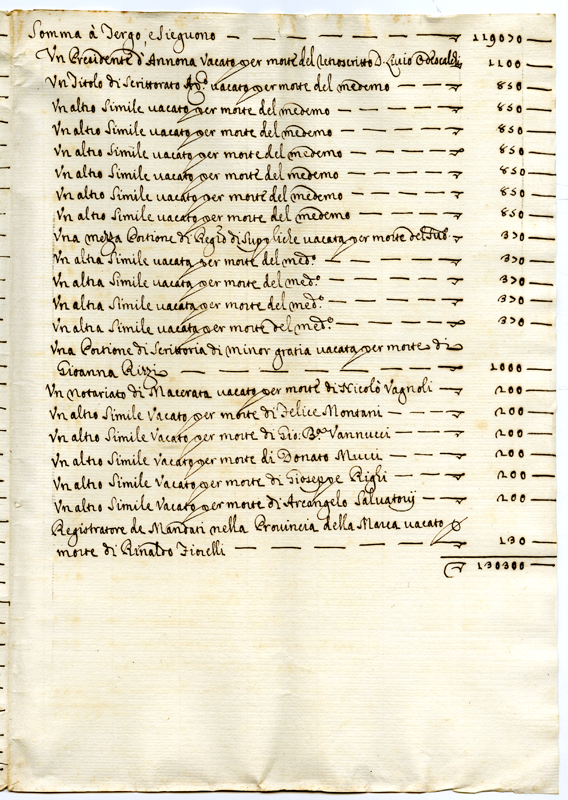 Somma à Tergo, e Sieguono — 119070 —
Un Presidente d'Annona Vacato per morte del retroscritto D. Livio Odescalchi 1100 —
Un Titolo di Scrittorato Ap.co vacato per morte del medemo — 850 —
Un altro Simile vacato per morte del medemo — 850 —
Un altro Simile vacato per morte del medemo — 850 —
Un altro Simile vacato per morte del medemo — 850 —
Un altro Simile vacato per morte del medemo — 850 —
Un altro Simile vacato per morte del medemo — 850 —
Un altro Simile vacato per morte del medemo — 850 —
Una mezza Portione di Reg.ro di Suppliche vacata per morte del 370 —
Un altra Simile vacata per morte del med.o — 370 —
Un altra Simile vacata per morte del med.o — 370 —
Un altra Simile vacata per morte del med.o — 370 —
Un altra Simile vacata per morte del med.o — 370 —
Una Portione di Scrittoria di minor gratia vacata per morte di
Gioanna Rizzi — 1000 —
Un notariato di Macerata vacato per morte di Nicolò Vagnoli — 200 —
Un altro Simile Vacato per morte di Felice Montani — 200 —
Un altro Simile Vacato per morte di Gio: B.a Vannucci — 200 —
Un altro Simile Vacato per morte di Donato Mucci — 200 —
Un altro Simile Vacato per morte di Gioseppe Righi — 200 —
Un altro Simile Vacato per morte di Arcangelo Salvatorij — 200 —
Registratore de Mandati nella Provincia della Marca vacato p
morte di Rinaldo Fiorelli — 130 —
130300 —